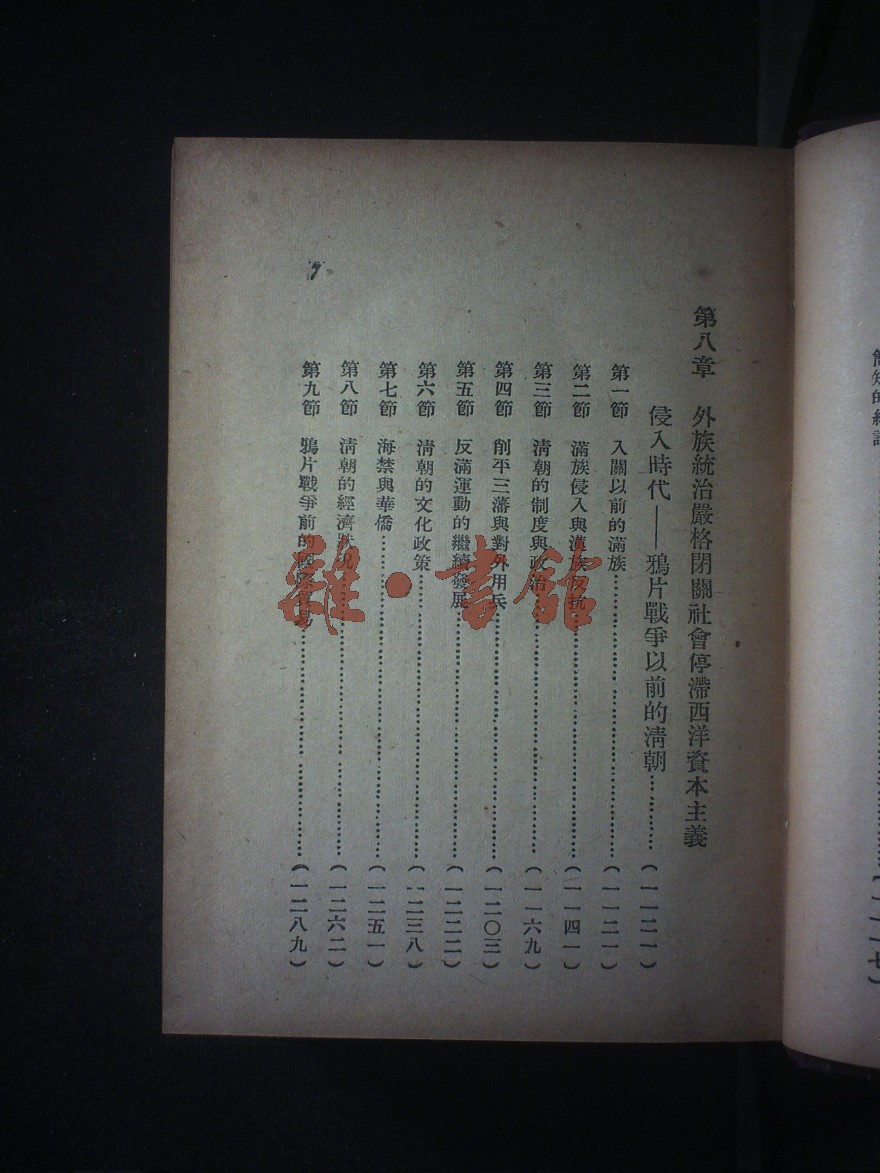 第八章 外族統治嚴格閉關社會停滯西洋資本主義
侵入時代——鴉片戰爭以前的清朝…………(一一二一)
第一節 入關以前的滿族…………(一一二一)
第二節 滿族侵入與漢族反抗…………(一一四一)
第三節 清朝的制度與政治…………(一一六九)
第四節 削平三藩與對外用兵…………(一二〇三)
第五節 反滿運動的繼續發展…………(一二二二)
第六節 清朝的文化政策…………(一二三八)
第七節 海禁與華僑…………(一二五一)
第八節 清朝的經濟狀況…………(一二六二)
第九節 鴉片戰爭前的國際貿易…………(一二八九)
7
雜·書館